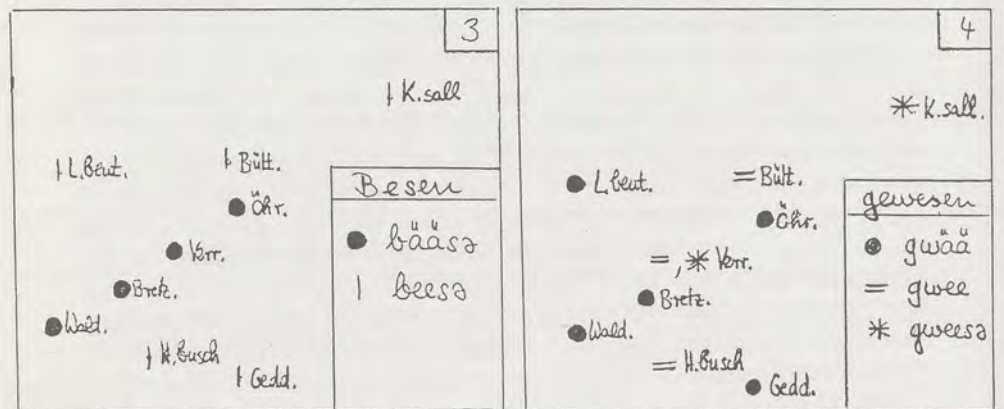 3
ⱡ K.sall
ⱡ L.Beut.
ⱡ Bült.
● Öhr.
● Verr.
● Bretz.
● Wald.
ⱡ H.Busch
ⱡ Gedd.
Besen
● bääsə
| beesə
4
* K.sall.
● L.beut.
= Bült.
● Öhr.
=, * Verr.
● Bretz.
● Wald.
= H.Busch
● Gedd.
gewesen
● gwää
= gwee
* gweesə